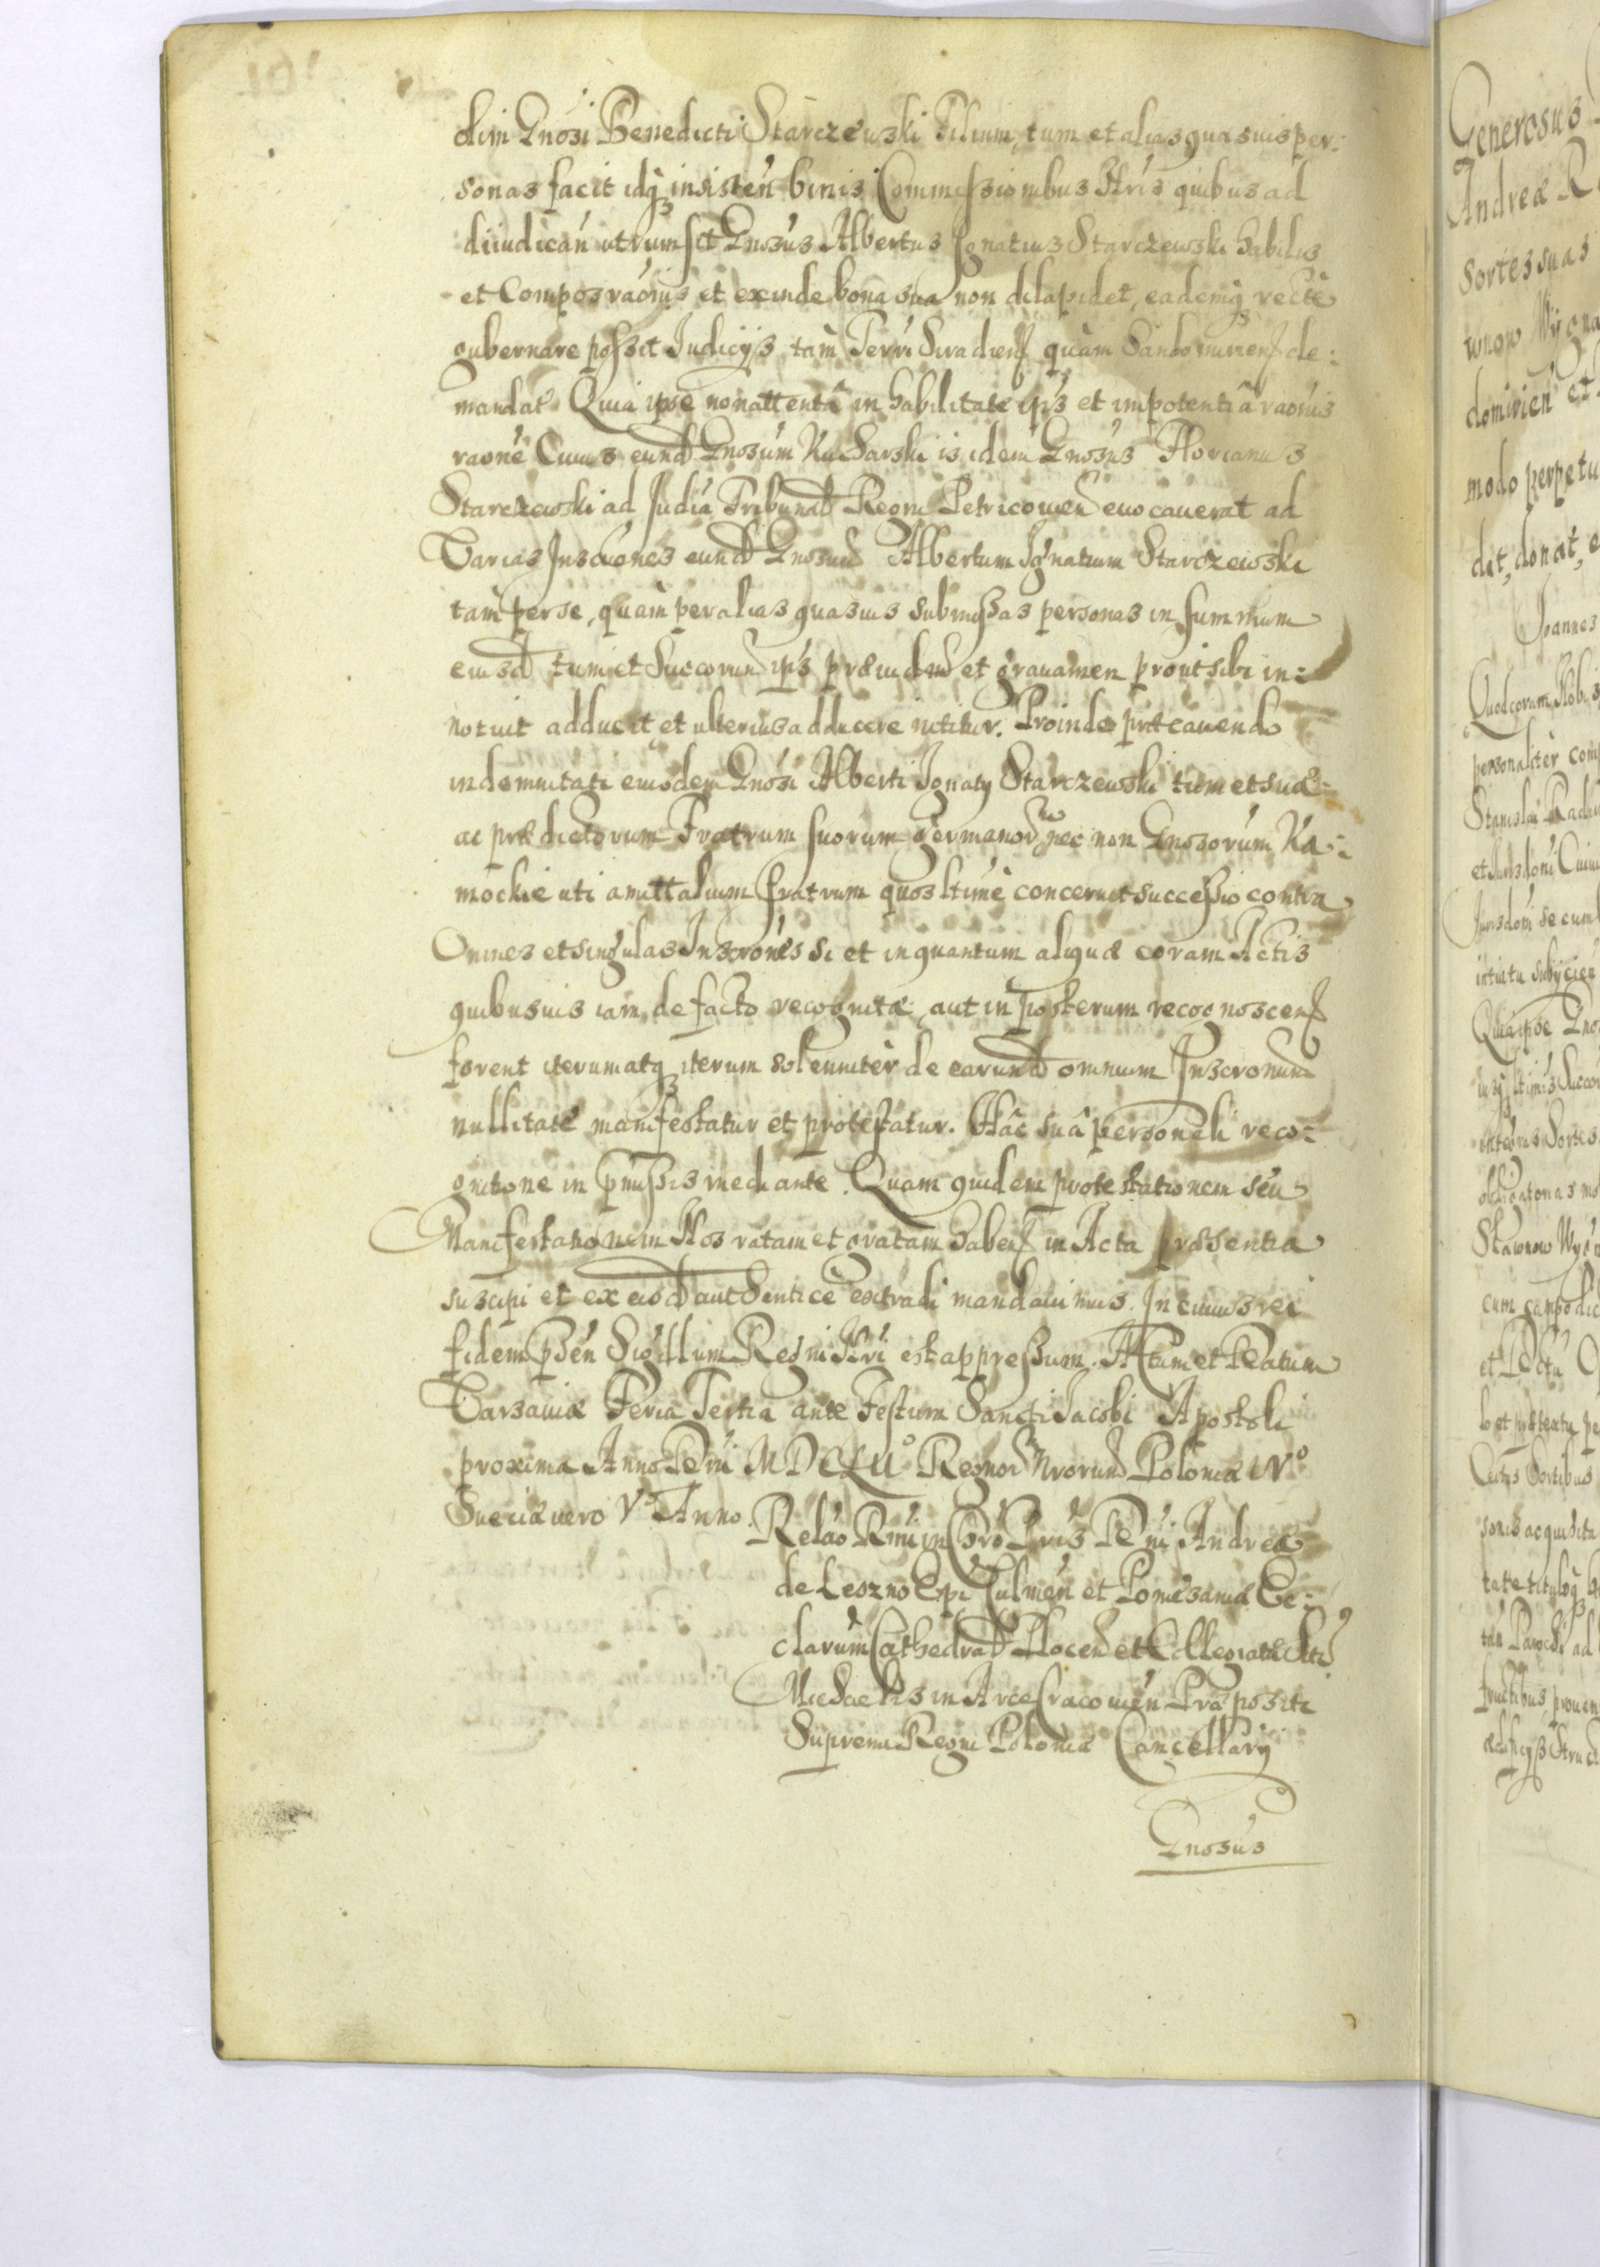 olim Gnosi Benedicti Starczewski Filium, tum et alias quasuis per:
sonas facit idq insisten binis Commissionibus Nris quibus ad
diiudican utrum sit Gnosus Albertus Ignatius Starczewski habilis
et Compos raonis et exinde bona sua non dilapidet, eademq recte
gubernare possit Judicijs tam Terri Siradien quàm Sandomirien de:
mandat. Quia ipse non attentâ in habilitate ipis et impotentiâ raonis
raone Cuius eund Gnosum Kucharski is idem Gnosus Florianus
Starczewski ad Judia Tribunal Regni Petricouien euocauerat ad
Varias Inscriones eund Gnosum Albertum Ignatium Starczewski
tàm per se, quàm per alias quasuis submissas personas in summum
eiusd tum et Succorum ipis præiudm et grauamen prout sibi in:
notuit adducit et ulterius adducere nititur. Proinde præcauendo
indemnitati eiusdem Gnosi Alberti Ignatij Starczewski tum et suæ
ac prædictorum Fratrum suorum germanor nec non Gnosorum Ka:
mockie uti amittalium Fratrum quos ltime concernit successio contra
Omnes et singulas Inscrones si et inquantum aliquæ coram Actis
quibusuis iam de facto recognitæ aut in posterum recognoscen
forent iterum atq iterum solenniter de earund omnium Inscronum
nullitate manifestatur et protestatur. Hâc suâ personali reco:
gnitione in pmissis mediante. Quam quidem protestationem seu
Manifestationem Nos ratam et gratam haben in Acta præsentia
suscipi et ex eisd authenticè extradi mandauimus. In cuius rei
fidem psen Sigillum Regni Nri est appressum. Actum et Datum
Varsauiæ Feria Tertia ante Festum Sancti Jacobi Apostoli
proxima Anno Dni MDCLII° Regnor Nrorum Poloniæ IV°
Sueciæ vero V° Anno.
Relao Rmi in Chro Pris Dni Andreæ
de Leszno Epi Culmen et Pomesaniæ Ec:
clarum Cathedral Plocen et Collegiatæ Sti
Michaelis in Arce Cracouien Præpositi
Supremi Regni Poloniæ Cancellarij
Gnosus
Generosus
Andreæ
sortes suas
domirien et
modo perpetu
dat, donat, e
Joannes
Quod coram Nobis
personaliter comp
Quia ipse Gno
cum campo dic
fructibus, prouen